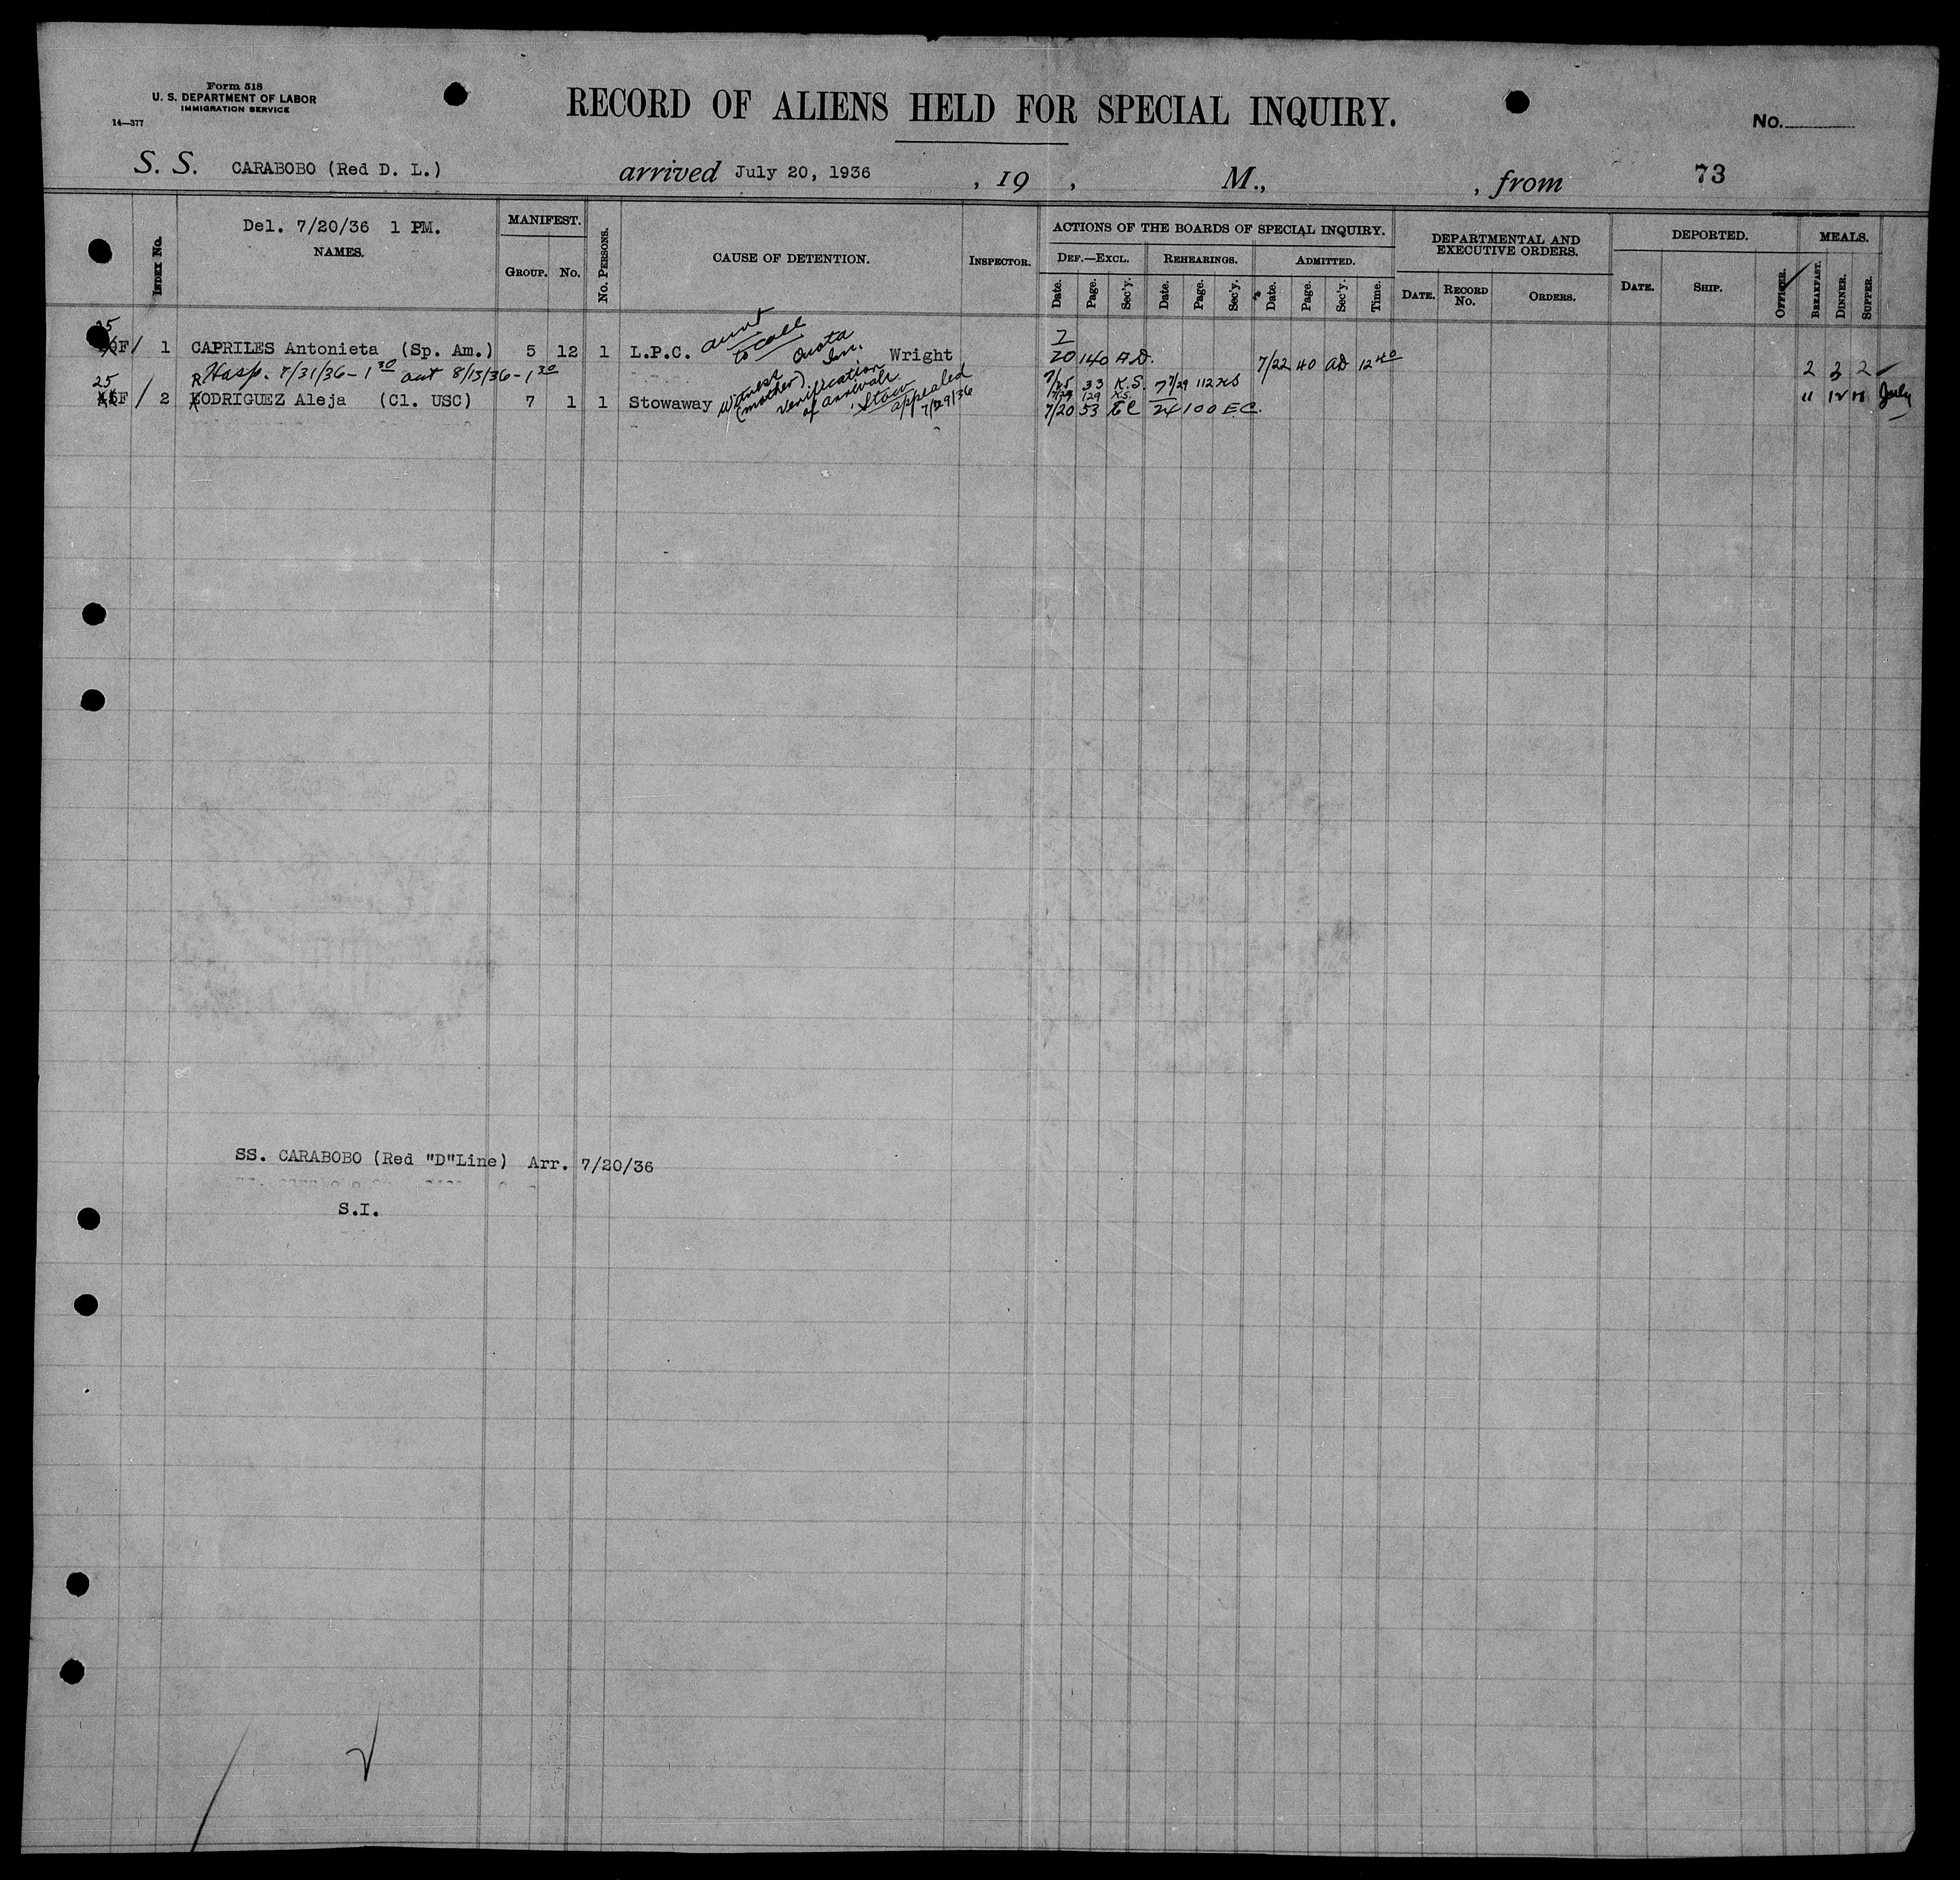 Form 518
U. S. DEPARTMENT OF LABOR
IMMIGRATION SERVICE
14—377
RECORD OF ALIENS HELD FOR SPECIAL INQUIRY.
No.
S. S. CARABOBO (Red D. L.) arrived July 20, 1936 , 19 , M., , from 73
Del. 7/20/36 1 PM.
INDEX No.
NAMES.
MANIFEST.
GROUP. No.
No. PERSONS.
CAUSE OF DETENTION.
INSPECTOR.
ACTIONS OF THE BOARDS OF SPECIAL INQUIRY.
DEF.—EXCL. REHEARINGS. ADMITTED.
Date. Page. Sec'y. Date. Page. Sec'y. Date. Page. Sec'y. Time.
DEPARTMENTAL AND
EXECUTIVE ORDERS.
DATE. RECORD No. ORDERS.
DEPORTED.
DATE. SHIP. OFFICER.
MEALS.
BREAKFAST. DINNER. SUPPER.
25
F/ 1 CAPRILES Antonieta (Sp. Am.) 5 12 1 L.P.C. aunt to call Quota Im. Wright 7/20 140 A.D. 7/22 40 AD 12 40 2 3 2
Hosp. 7/31/36 – 1 30 out 8/13/36 – 1 30
25
F/ 2 RODRIGUEZ Aleja (Cl. USC) 7 1 1 Stowaway Witness (mother) Verification of arrival. Stow appealed 7/29/36
7/25 33 K.S. 7/29 112 KS
7/29 129 K.S.
7/20 53 EC 24 100 E.C.
July
SS. CARABOBO (Red "D"Line) Arr. 7/20/36
S.I.